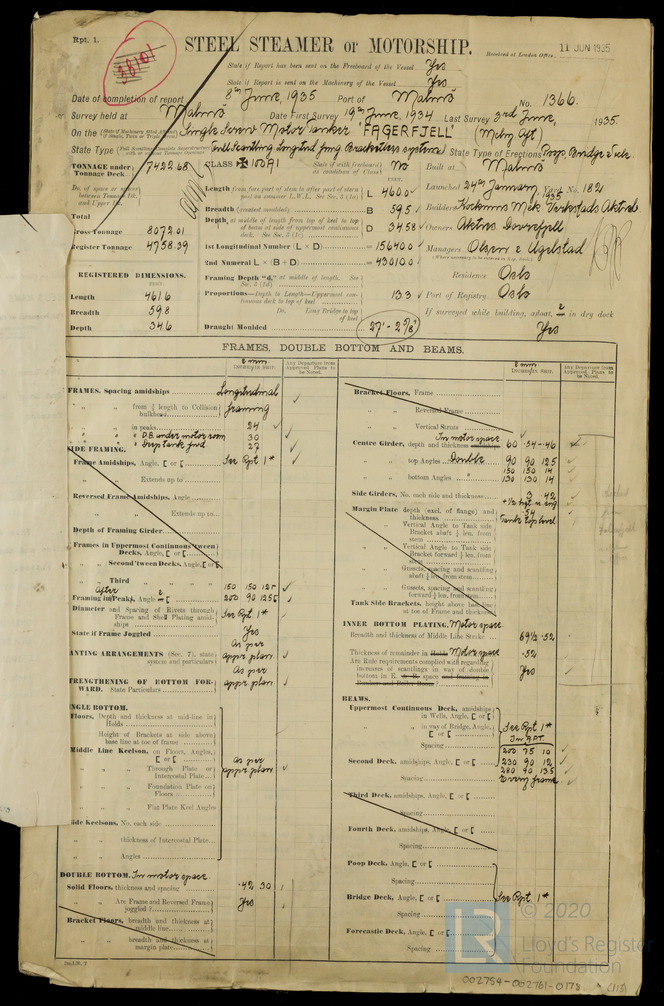 Rpt. 1.
STEEL STEAMER or MOTORSHIP.
Received at London Office 11 JUN 1935
State if Report has been sent on the Freeboard of the Vessel Yes
State if Report is sent on the Machinery of the Vessel Yes
Date of completion of report 8th June, 1935 Port of Malmö No. 1366.
Survey held at Malmö Date First Survey 19th June, 1934 Last Survey 3rd June, 1935.
On the Single Screw Motor Tanker "FAGERFJELL" (Mchy Aft)
State Type Full Scantling State Type of Erections Poop, Bridge
TONNAGE under Tonnage Deck 7422.68
CLASS ✠ 100A1
No
Built at Malmö
Launched 24th January, 1935 Yard No. 182
Length L 460.0
Breadth (greatest moulded) B 59.5
Builders Kockums Mek Verkstads Aktieb
Total
Gross Tonnage 8072.01
Depth D 34.58
Owners Akties. Dovrefjell
Register Tonnage 4758.39
1st Longitudinal Number (L × D) = 15640.0
Managers Olsen & Ugelstad
2nd Numeral L × (B + D) = 43010.0
Residence Oslo
REGISTERED DIMENSIONS.
FEET.
Framing Depth "d,"
Length 461.6
Proportions—Depth to Length—Uppermost continuous deck to top of keel 13.3
Port of Registry Oslo
Breadth 59.8
Do. Long Bridge to top of keel
If surveyed while building, afloat, or in dry dock
Depth 34.6
Draught Moulded 27'-2⅝"
Yes
FRAMES, DOUBLE BOTTOM AND BEAMS.
Any Departure from Approved Plans to be Noted.
FRAMES, Spacing amidships Longitudinal
" " from ⅕ length to Collision bulkhead framing
" " in peaks 24
" " D.B. under motor room 30
" " Deep tank fwd. 27
SIDE FRAMING.
Frame Amidships, Angle, [ or [ See Rpt 1*
" " Extends up to
Reversed Frame Amidships, Angle
" " Extends up to
Depth of Framing Girder
Frames in Uppermost Continuous 'tween Decks, Angle, [ or [
" Second 'tween Decks, Angle, [ or [
" Third " " " "
After 150 150 125
Framing in Peaks, Angle 200 90 125
Diameter and Spacing of Rivets through Frame and Shell Plating amidships See Rpt 1*
State if Frame Joggled Yes
PANTING ARRANGEMENTS (Sec. 7), state system and particulars As per appr plan
STRENGTHENING OF BOTTOM FORWARD. State Particulars As per appr plan
SINGLE BOTTOM.
Floors, Depth and thickness at mid-line in Holds
" Height of Brackets at side above base line at toe of frame
Middle Line Keelson, on Floors, Angles, [ or [ As per
" " Through Plate or Intercostal Plate appr plan
" " Foundation Plate on Floors
" " Flat Plate Keel Angles
Side Keelsons, No. each side
" " thickness of Intercostal Plate
" " Angles
DOUBLE BOTTOM. In motor space
Solid Floors, thickness and spacing .42 30
" " Are Frame and Reversed Frame joggled? Yes
Bracket Floors, breadth and thickness at middle line
" " breadth and thickness at margin plate
Bracket Floors, Frame
" " Reversed Frame
" " Vertical Struts
In motor space
Centre Girder, depth and thickness 60 .54-.46
" " top Angles Double 90 90 12.5
150 150 14
" " bottom Angles 130 130 14
Side Girders, No. each side and thickness 3 .42
Margin Plate depth (excl. of flange) and thickness .54
Tank top level
" " Vertical Angle to Tank side Bracket abaft ¼ len. from stem
" " Vertical Angle to Tank side Bracket forward ¼ len. from stem
" " Gussets, spacing and scantling abaft ¼ len. from stem
" " Gussets, spacing and scantling forward ¼ len. from stem
Tank Side Brackets, height above base line at toe of Frame and thickness
INNER BOTTOM PLATING. Motor space
Breadth and thickness of Middle Line Strake 69½ .52
Thickness of remainder in Holds Motor space .54
Are Rule requirements complied with regarding increases of scantlings in way of double bottom in E. & B. space and framing in Bunkers and Boiler Room? Yes
BEAMS.
Uppermost Continuous Deck, amidships in Wells, Angle, [ or [ See Rpt 1*
" " in way of Bridge, Angle, [ or [
" " Spacing 200 75 10
Second Deck, amidships, Angle, [ or [ 230 90 12
280 90 13.5
Spacing Every frame
Third Deck, amidships, Angle, [ or [
Spacing
Fourth Deck, amidships, Angle, [ or [
Spacing
Poop Deck, Angle, [ or [
Spacing
Bridge Deck, Angle, [ or [ See Rpt 1*
Spacing
Forecastle Deck, Angle, [ or [
Spacing
© 2020
Lloyd's Register
Foundation
002754-002761-0178